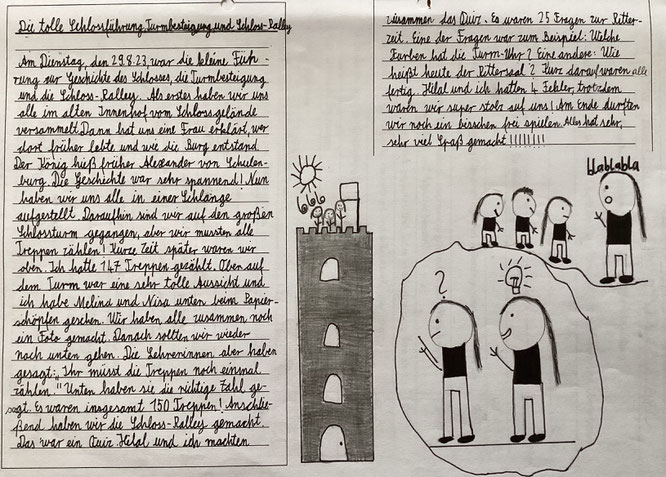 Die tolle Schlossführung, Turmbesteigung und Schloss-Ralley
Am Dienstag, den 29.8.23 war die kleine Füh-
rung zur Geschichte des Schlosses, die Turmbesteigung
und die Schloss-Ralley. Als erstes haben wir uns
alle im alten Innenhof vom Schlossgelände
versammelt. Dann hat uns eine Frau erklärt, wer
dort früher lebte und wie die Burg entstand.
Der König hieß früher Alexander von Schulen-
burg. Die Geschichte war sehr spannend! Nun
haben wir uns alle in einer Schlange
aufgestellt. Daraufhin sind wir auf den großen
Schlossturm gegangen, aber wir mussten alle
Treppen zählen! Kurze Zeit später waren wir
oben. Ich hatte 147 Treppen gezählt. Oben auf
dem Turm war eine sehr tolle Aussicht und
ich habe Melina und Nisa unten beim Papier-
schöpfen gesehen. Wir haben alle zusammen noch
ein Foto gemacht. Danach sollten wir wieder
nach unten gehen. Die Lehrerinnen aber haben
gesagt: „Ihr müsst die Treppen noch einmal
zählen." Unten haben sie die richtige Zahl ge-
sagt. Es waren insgesamt 150 Treppen! Anschlie-
ßend haben wir die Schloss-Ralley gemacht.
Das war ein Quiz. Hilal und ich machten
zusammen das Quiz. Es waren 25 Fragen zur Ritter-
zeit. Eine der Fragen war zum Beispiel: Welche
Farben hat die Turm-Uhr? Eine andere: Wie
heißt heute der Rittersaal? Kurz darauf waren alle
fertig. Hilal und ich hatten 4 Fehler, trotzdem
waren wir super stolz auf uns! Am Ende durften
wir noch ein bisschen frei spielen. Alles hat sehr,
sehr viel Spaß gemacht!!!!!!!!
blablabla
?